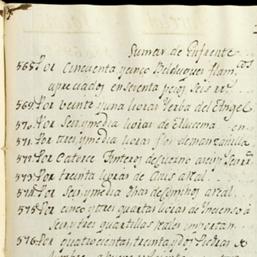 Suma de Enfrente
568. Por Cincuenta y cinco Belduques flam.cos
apreciados en sesenta pesos seis rr.s
569. Por veinte y una libras Yerba del Angel
570. Por seis y media libras de Alucema en
571. Por tres y media libras flor de manzanilla
572. Por Catorce Tinteros de cuerno a
573. Por treinta libras de a real
574. Por seis y media libras de a real
575. Por cinco y tres quartas libras de Incienso à
seis y tres quartillos reales importan
576. Por quatrocientas treinta y dos Piedras de